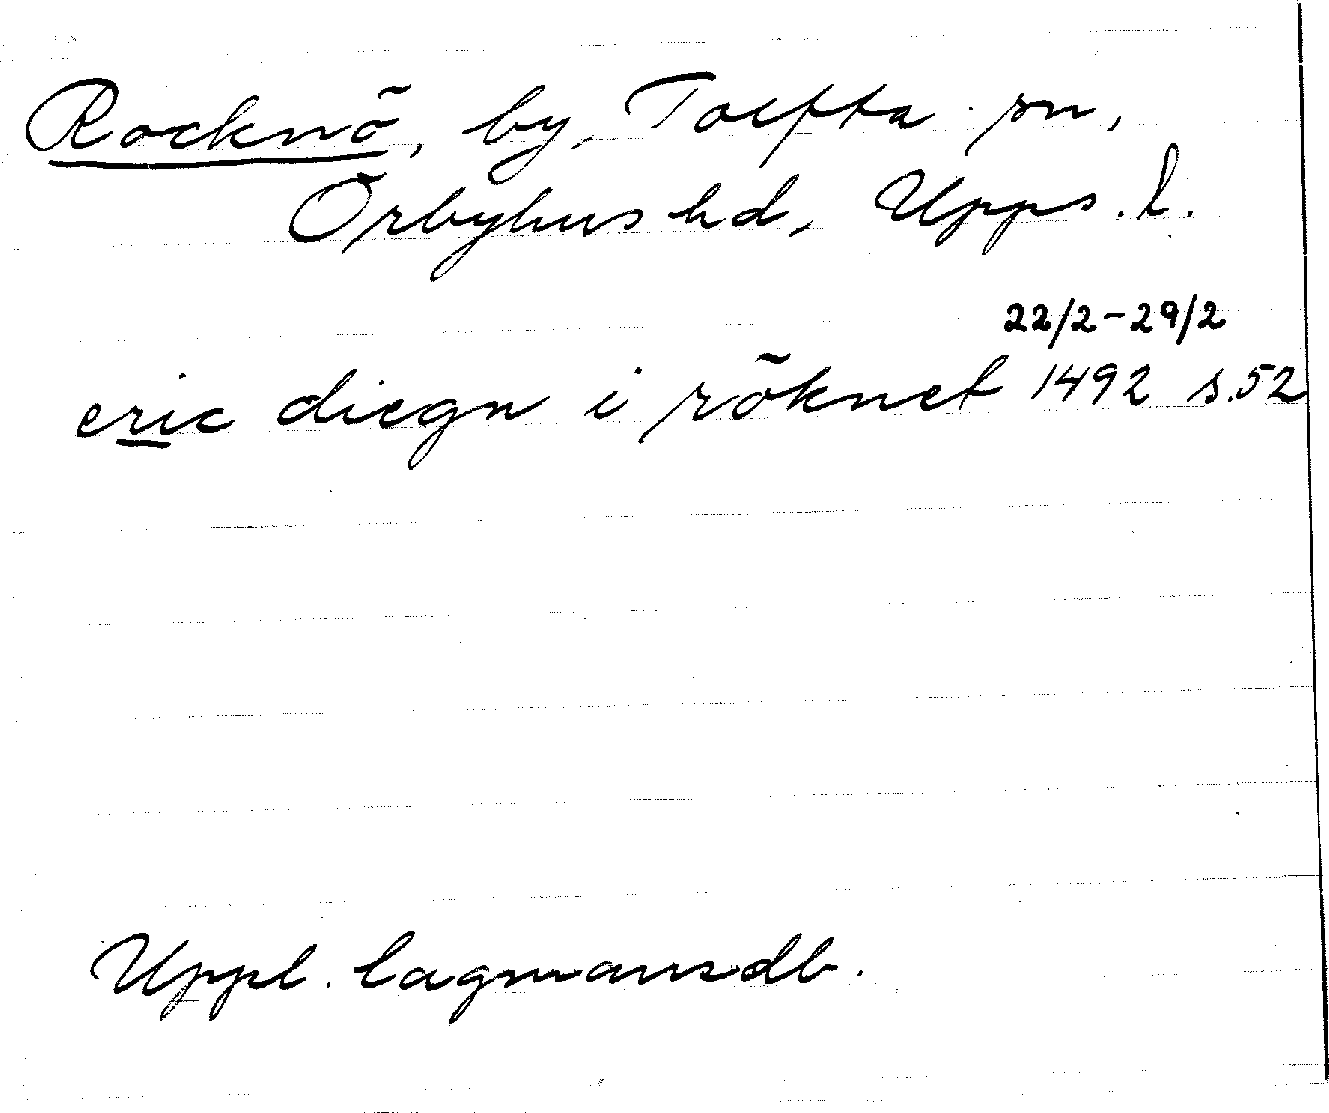 Rocknö, by, Tolfta sn,
Örbyhus hd, Upps. l.
22/2-29/2
eric diegn i röknet 1492 s. 52
Uppl. lagmansdb.